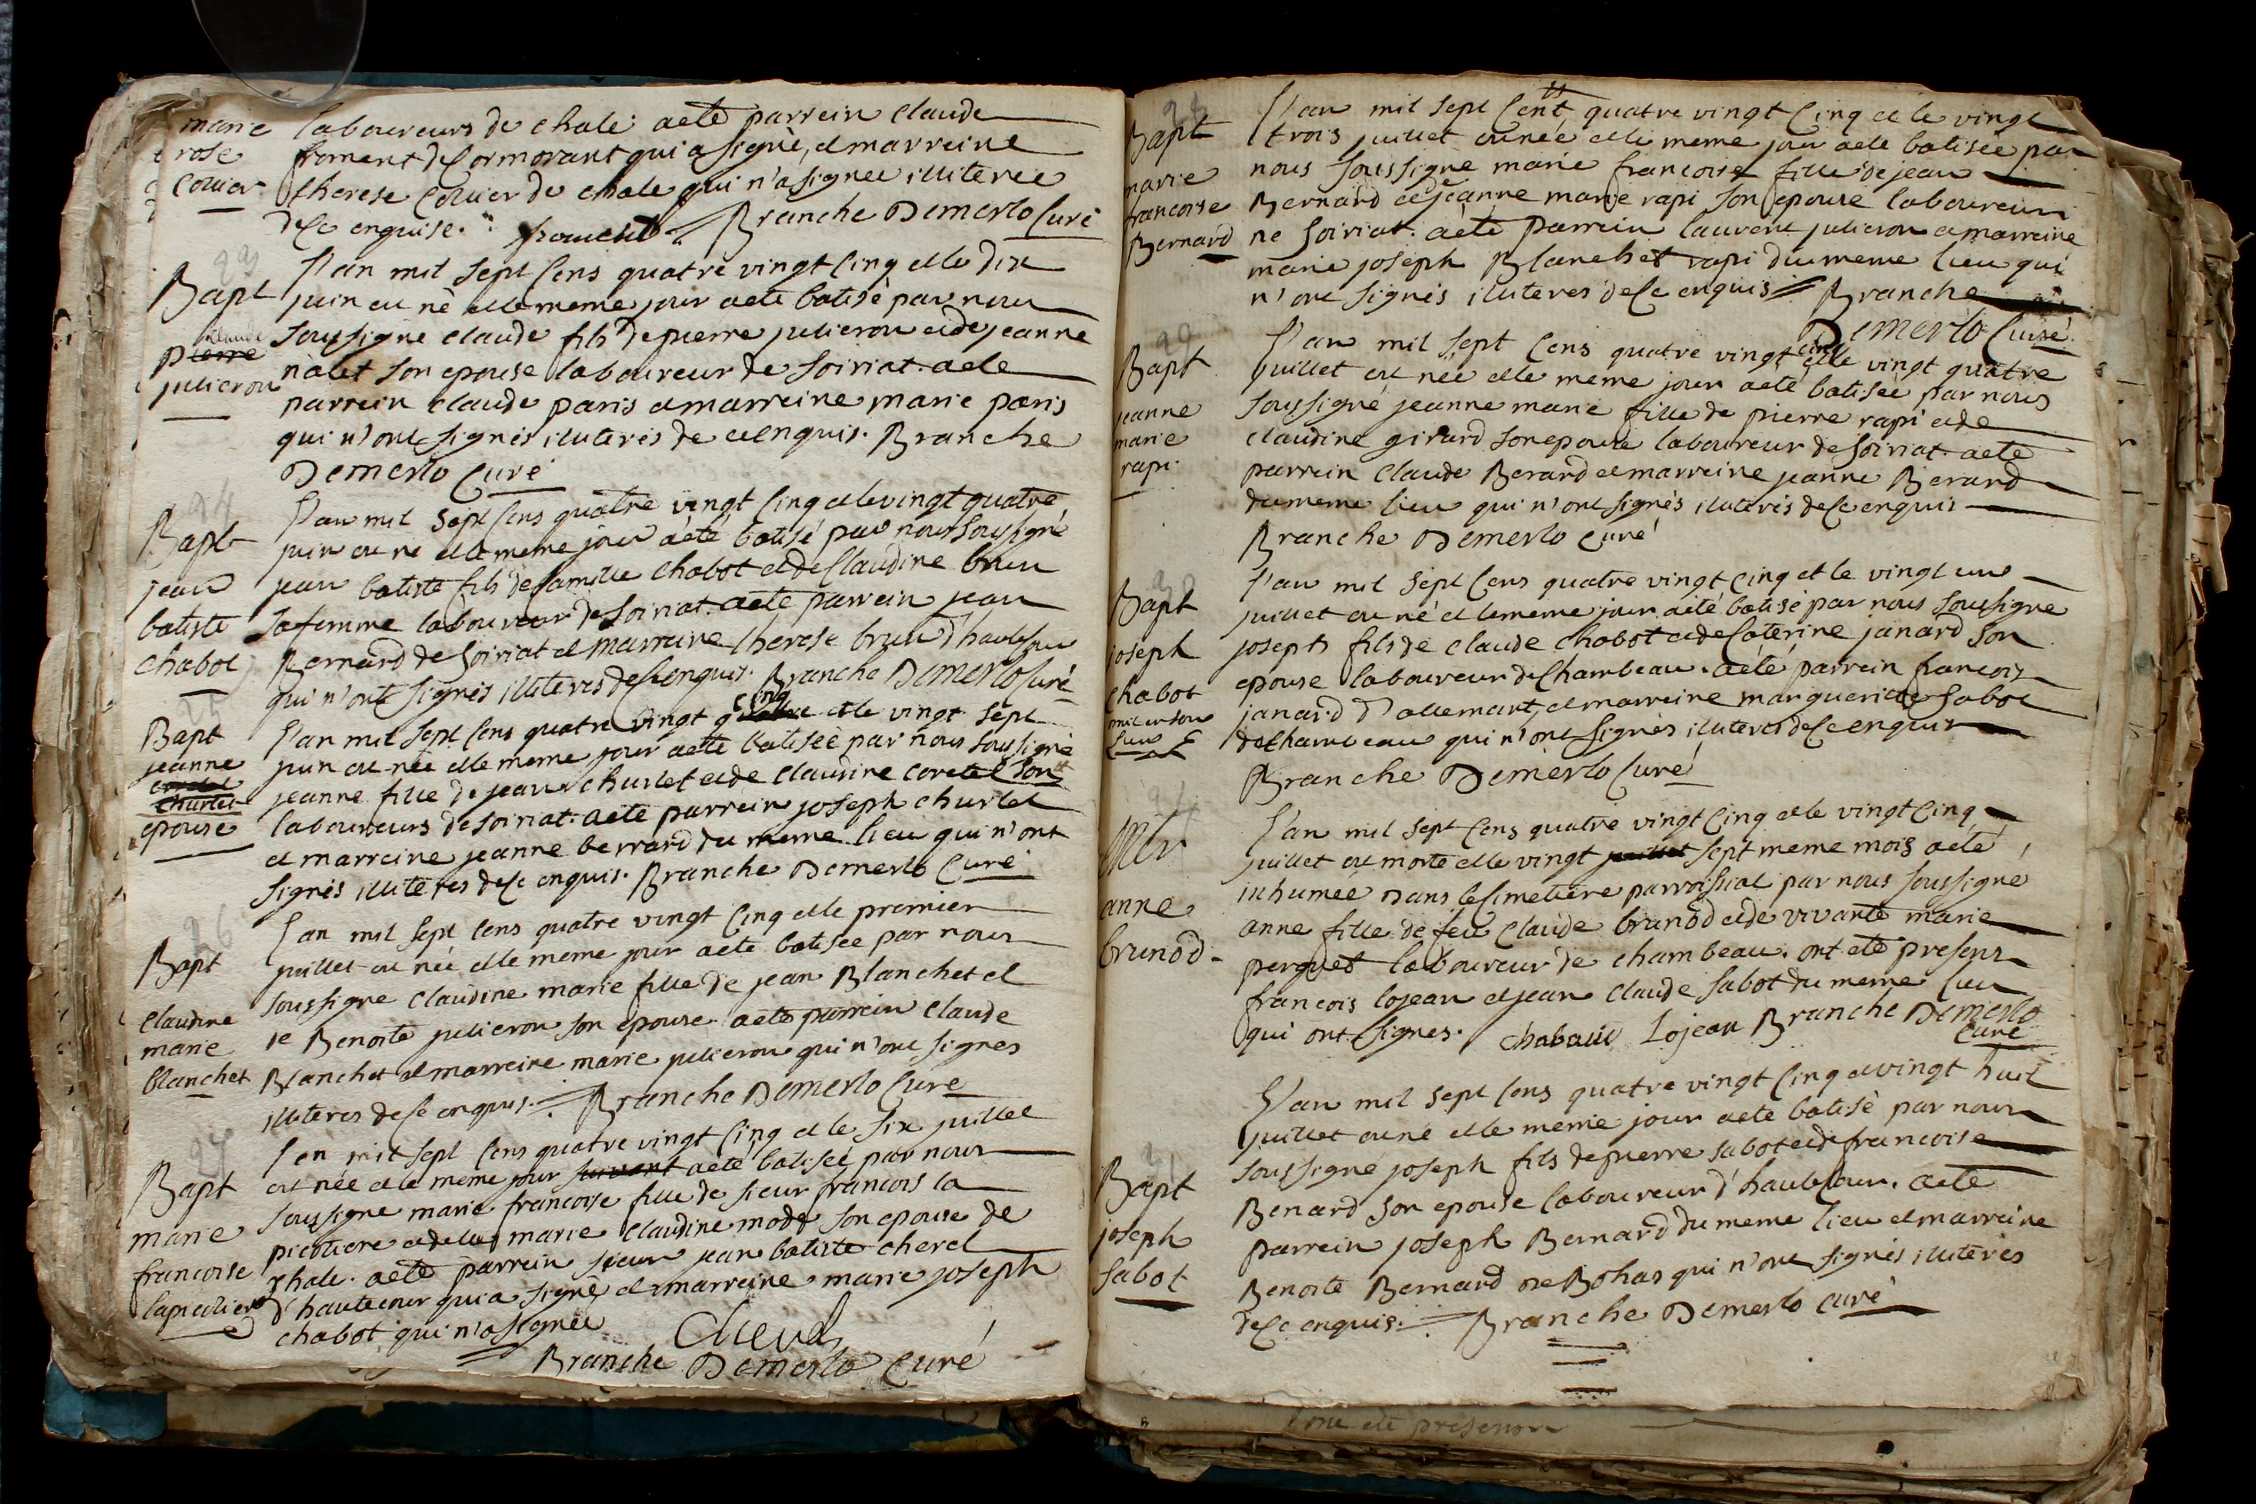 marie
rose
Colvier
laboureurs de chale. aeté parrein claude
froment de Cormorant qui a signé, et marreine
therese Colvier de chale qui n'a signée illiteree
de Ce enquise. froment Branche Demerlo Curé
23
Bapt
claude
pierre
julieron
L'an mil sept Cens quatre vingt Cinq et le dix
juin est né et le meme jour aeté batisé par nous
soussigné claude fils de pierre julieron et de jeanne
nalet son epouse laboureur de soiriat. aeté
parrein claude paris et marreine marie paris
qui n'ont signés illiterés de ce enquis. Branche
Demerlo Curé
24
Bapt
jean
batiste
chabot
L'an mil sept Cens quatre vingt Cinq et le vingt quatre
juin est né et le meme jour aeté batisé par nous soussigné
jean batiste fils de Camille chabot et de Claudine brun
sa femme laboureur de soiriat. aeté parrein jean
Bernard de soiriat et marreine therese brun d'hautecour
qui n'ont signés illiterés de Ce enquis. Branche Demerlo Curé
25
Bapt
jeanne
churlet
epouse
L'an mil sept Cens quatre vingt quatre cinq et le vingt sept
juin est née et le meme jour aeté batisée par nous soussigné
jeanne fille de jean churlet et de claudine coretet son
laboureurs de soiriat. aeté parrein joseph churlet
et marreine jeanne berrard du meme lieu qui n'ont
signés illiterés de Ce enquis. Branche Demerlo Curé
26
Bapt
claudine
marie
blanchet
L'an mil sept Cens quatre vingt Cinq et le premier
juillet est née et le meme jour aeté batisée par nous
soussigné claudine marie fille de jean Blanchet et
de Benoite julieron son epouse. aeté parrein claude
Blanchet et marreine marie julieron qui n'ont signés
illiterés de Ce enquis. Branche Demerlo Curé
27
Bapt
marie
francoise
lapicotiere
L'an mil sept Cens quatre vingt Cinq et le six juillet
est née et le meme jour suivant aeté batisée par nous
soussigné marie francoise fille de sieur francois la
picotiere et de marie claudine mode son epouse de
chale. aeté parrein sieur jean batiste cheret
d'hautecour qui a signé et marreine marie joseph
chabot qui n'a signée
Branche Demerlo Curé
28
Bapt
marie
francoise
Bernard
L'an mil sept Cent quatre vingt Cinq et le vingt
trois juillet est née et le meme jour aeté batisée par
nous soussigné marie francoise fille de jean
Bernard et de jeanne marie rapi son epouse laboureur
de soiriat. aeté parrein laurent julieron et marreine
marie joseph Blanchet rapi du meme lieu qui
n'ont signés illiterés de Ce enquis Branche
Demerlo Curé
29
Bapt
jeanne
marie
rapi.
L'an mil sept Cens quatre vingt cinq et le vingt quatre
juillet est née et le meme jour aeté batisée par nous
soussigné jeanne marie fille de pierre rapi et de
claudine girard son epouse laboureur de soiriat. aeté
parrein claude Berard et marreine jeanne Berard
du meme lieu qui n'ont signés illiterés de Ce enquis
Branche Demerlo Curé
30
Bapt
joseph
chabot
L'an mil sept Cens quatre vingt Cinq et le vingt un
juillet est né et le meme jour aété batisé par nous soussigné
joseph fils de claude chabot et de Caterine janard son
epouse laboureur de Chambeau. aété parrein francois
janard d'allemant, et marreine marguerite sabot
de Chambeau qui n'ont signés illiterés de Ce enquis
Branche Demerlo Curé
anne
brunod.
L'an mil sept Cens quatre vingt Cinq et le vingt Cinq
juillet est morte et le vingt juillet sept meme mois aeté
inhumée dans le Cimetiere parroissial par nous soussigné
anne fille de feu claude brunod et de vivante marie
perguet laboureur de chambeau. ont eté presens
francois lojean et jean claude sabot du meme lieu
qui ont signés. Lojean Branche Demerlo
Curé
Bapt
joseph
sabot
L'an mil sept Cens quatre vingt Cinq et vingt huit
juillet est né et le meme jour aeté batisé par nous
soussigné joseph fils de pierre sabot et de francoise
Benard son epouse laboureur d'hautecour. aeté
parrein joseph Bernard du meme lieu et marreine
Benoite Bernard de Bohas qui n'ont signés illiterés
de Ce enquis. Branche Demerlo Curé